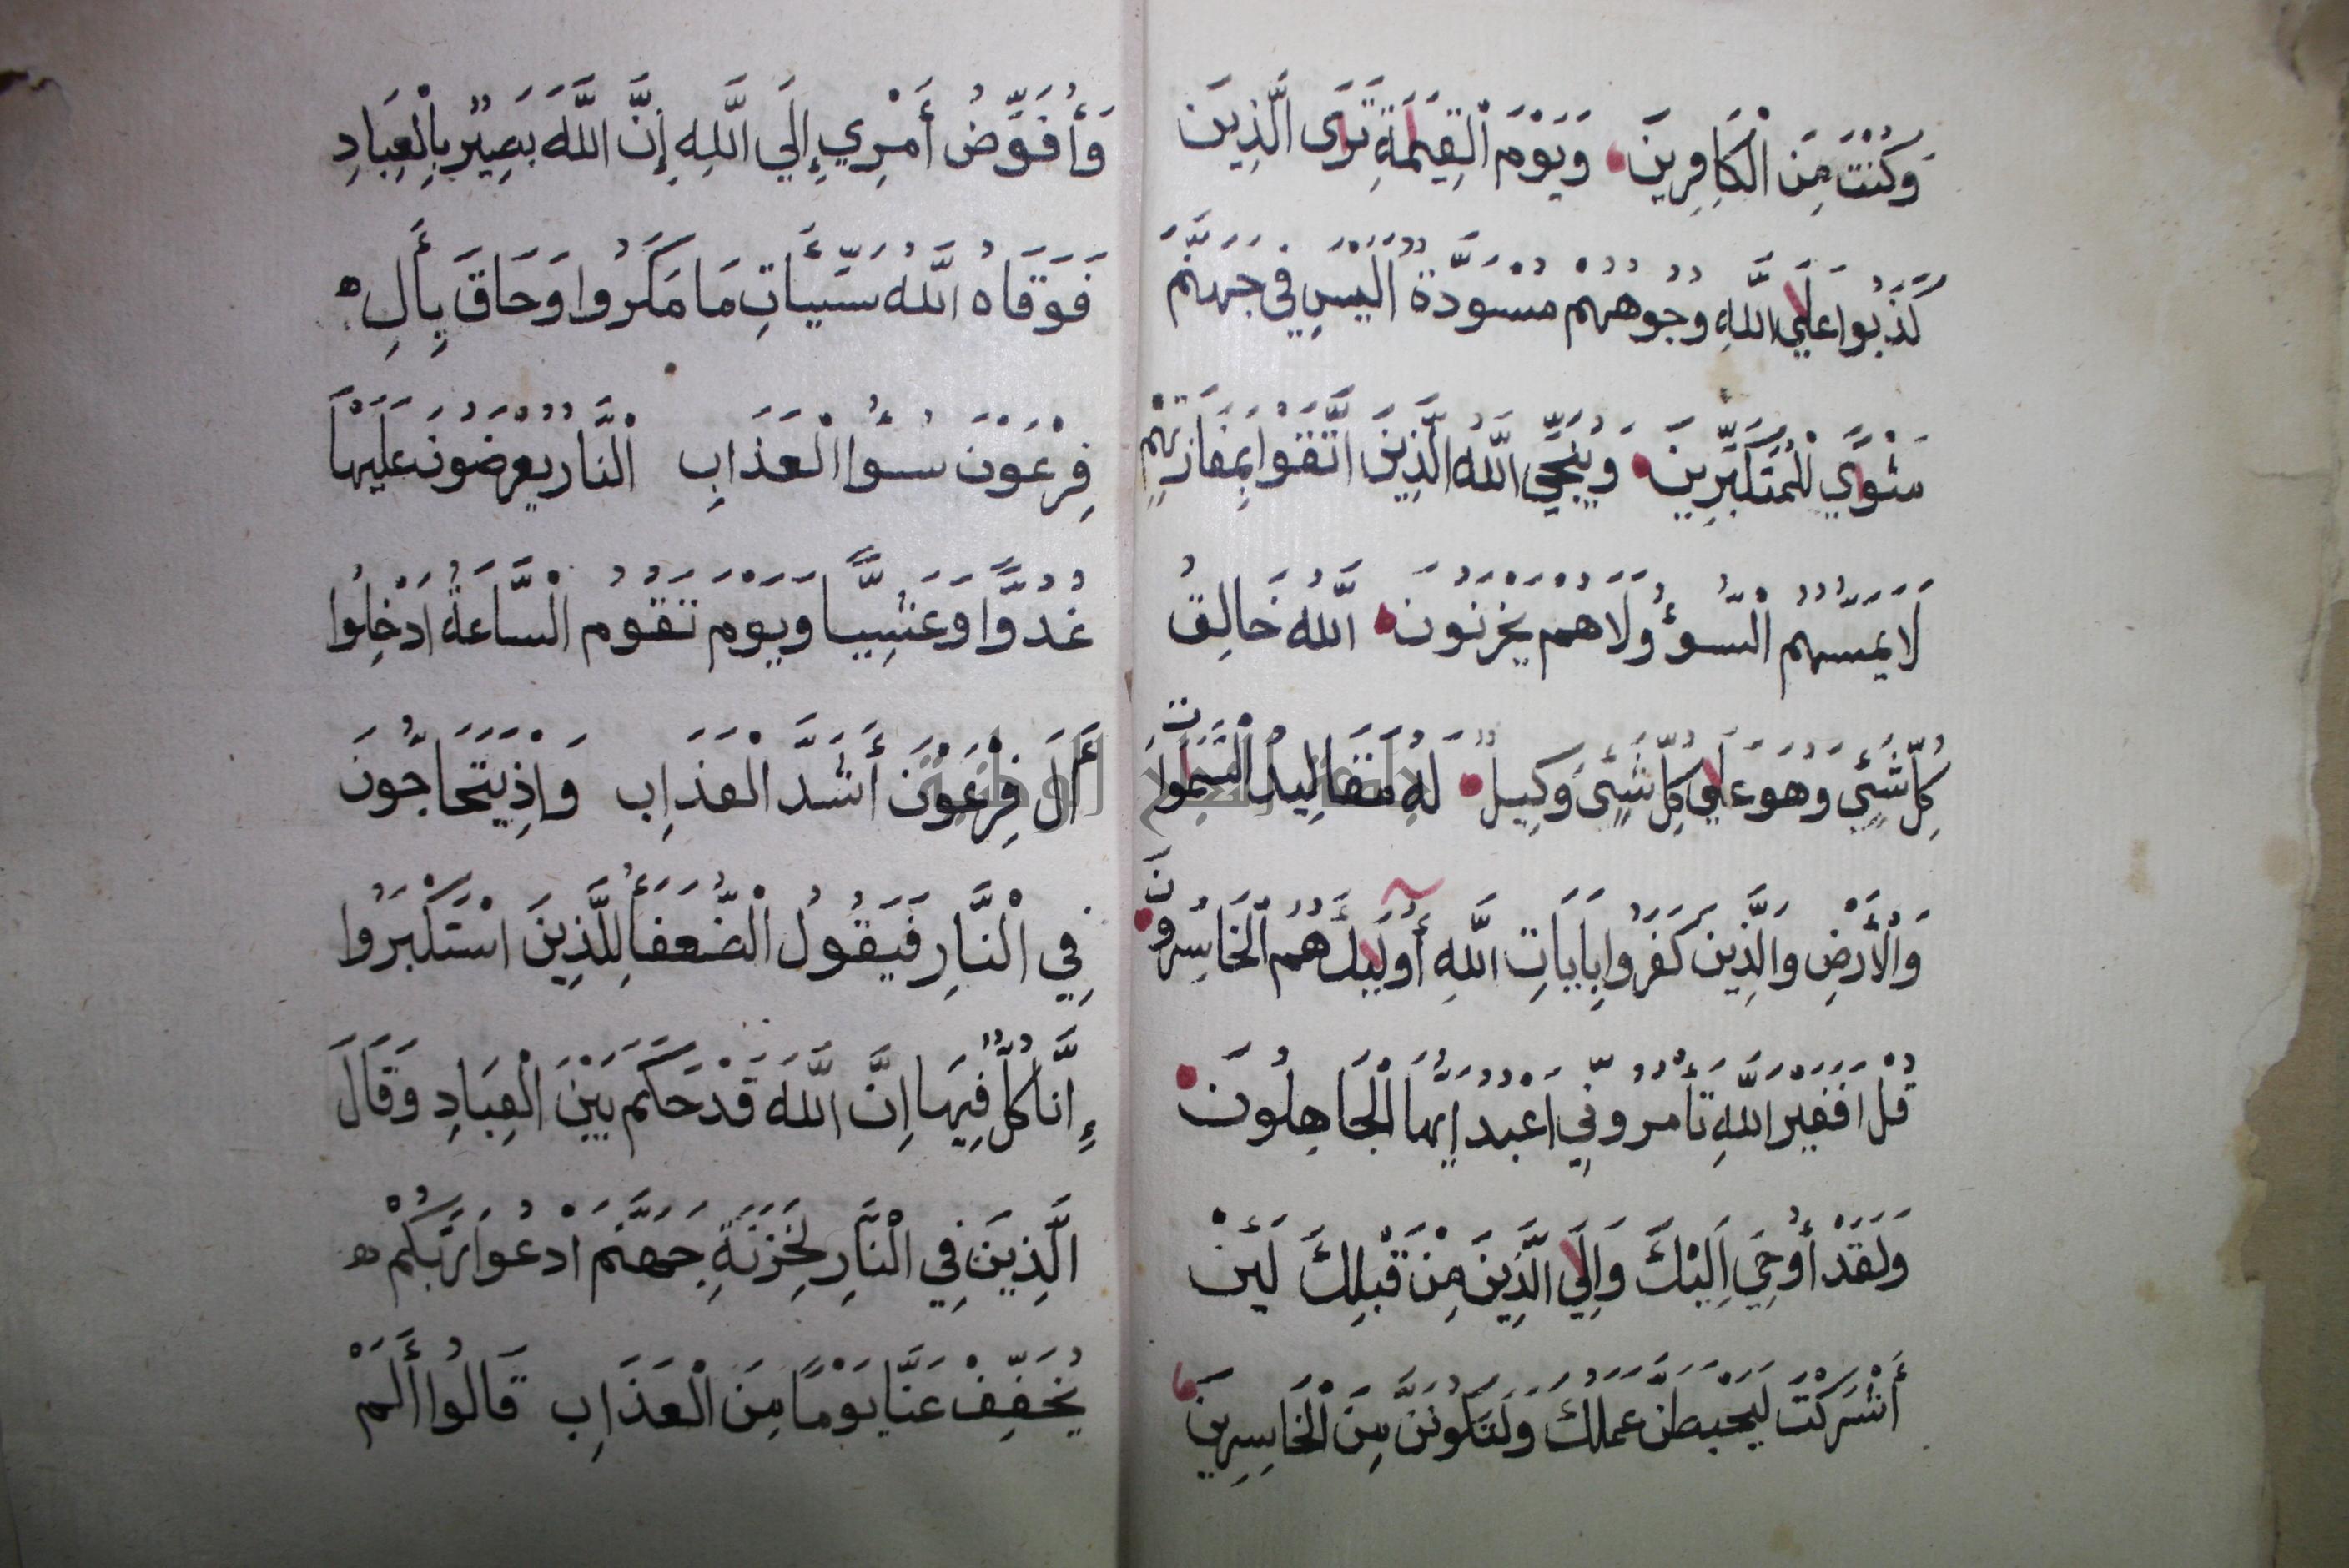 وَكُنْتَ مِنَ الْكَافِرِينَ وَيَوْمَ الْقِيَمَةِ تَرَى الَّذِينَ
كَذَبُوا عَلَي اللَّهِ وُجُوهُهُمْ مُسْوَدَّةٌ اَلَيْسَ فِي جَهَنَّمَ
مَثْوًي لِلْمُتَكَبِّرِينَ وَيُنَجِّي اللَّهُ الَّذِينَ اتَّقَوْا بِمَفَازَتِهِمْ
لَا يَمَسُّهُمُ الْسُّوءُ وَلَا هُمْ يَحْزَنُونَ اللَّهُ خَالِقُ
كُلِّ شَيْءٍ وَهُوَ عَلَي كُلِّ شَيْءٍ وَكِيلٌ لَهُ مَقَالِيدُ الْسَّمَوَاتِ
وَالْأَرْضِ وَالَّذِينَ كَفَرُوا بِأَيَاتِ اللَّهِ أُولَئِكَ هُمُ الْخَاسِرُونَ
قُلْ اَفَغَيْرَ اللَّهِ تَأْمُرُونِّي اَعْبُدُ اَيُّهَا الْجَاهِلُونَ
وَلَقَدْ أُوحِيَ اِلَيْكَ وَاِلَي الَّذِينَ مِنْ قَبْلِكَ لَئِنْ
أَشْرَكْتَ لَيَحْبَطَنَّ عَمَلُكَ وَلَتَكُونَنَّ مِنَ الْخَاسِرِينَ
وَأُفَوِّضُ أَمْرِي إِلَي اللَّهِ إِنَّ اللَّهَ بَصِيرٌ بِالْعِبَادِ
فَوَقَاهُ اللَّهُ سَيِّئَاتِ مَا مَكَرُوا وَحَاقَ بِأَلِ
فِرْعَوْنَ سُوءُ الْعَذَابِ الْنَّارُ يُعْرَضُونَ عَلَيْهَا
غُدُوًّا وَعَشِيًّا وَيَوْمَ تَقُومُ الْسَّاعَةُ اَدْخِلُوا
أَلَ فِرْعَوْنَ أَشَدَّ الْعَذَابِ وَاِذْ يَتَحَاجُّونَ
فِي الْنَّارِ فَيَقُولُ الْضُّعَفَأُ لِلَّذِينَ اسْتَكْبَرُوا
إِنَّا كُلٌّ فِيهَا اِنَّ اللَّهَ قَدْ حَكَمَ بَيْنَ الْعِبَادِ وَقَالَ
الَّذِينَ فِي الْنَّارِ لِخَزَنَةِ جَهَنَّمَ ادْعُوا رَبَّكُمْ
يُخَفِّفْ عَنَّا يَوْمًا مِنَ الْعَذَابِ قَالُوا أَلَمْ